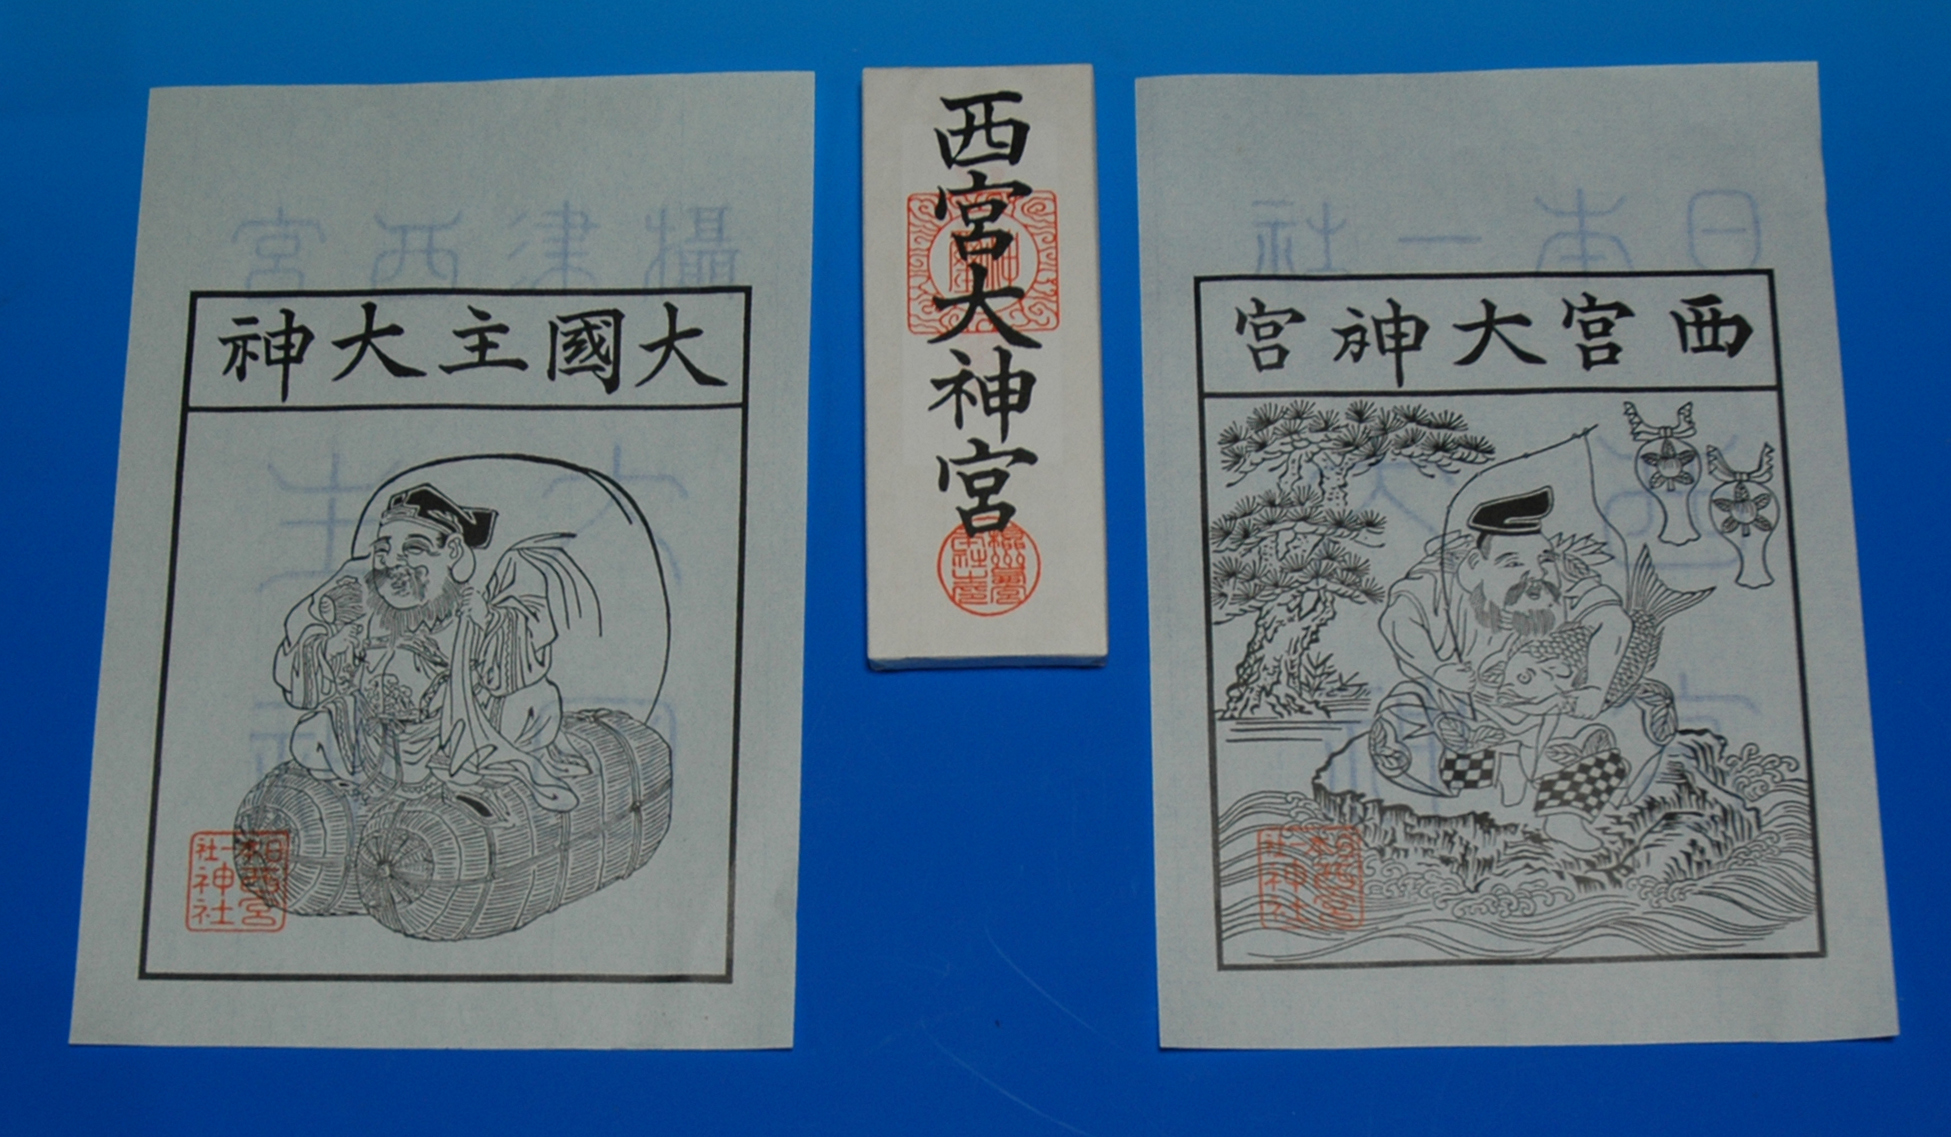 大國主大神
攝津西宮
日本一社
西宮神社
西宮大神宮
西宮大神宮
日本一社
西宮神社